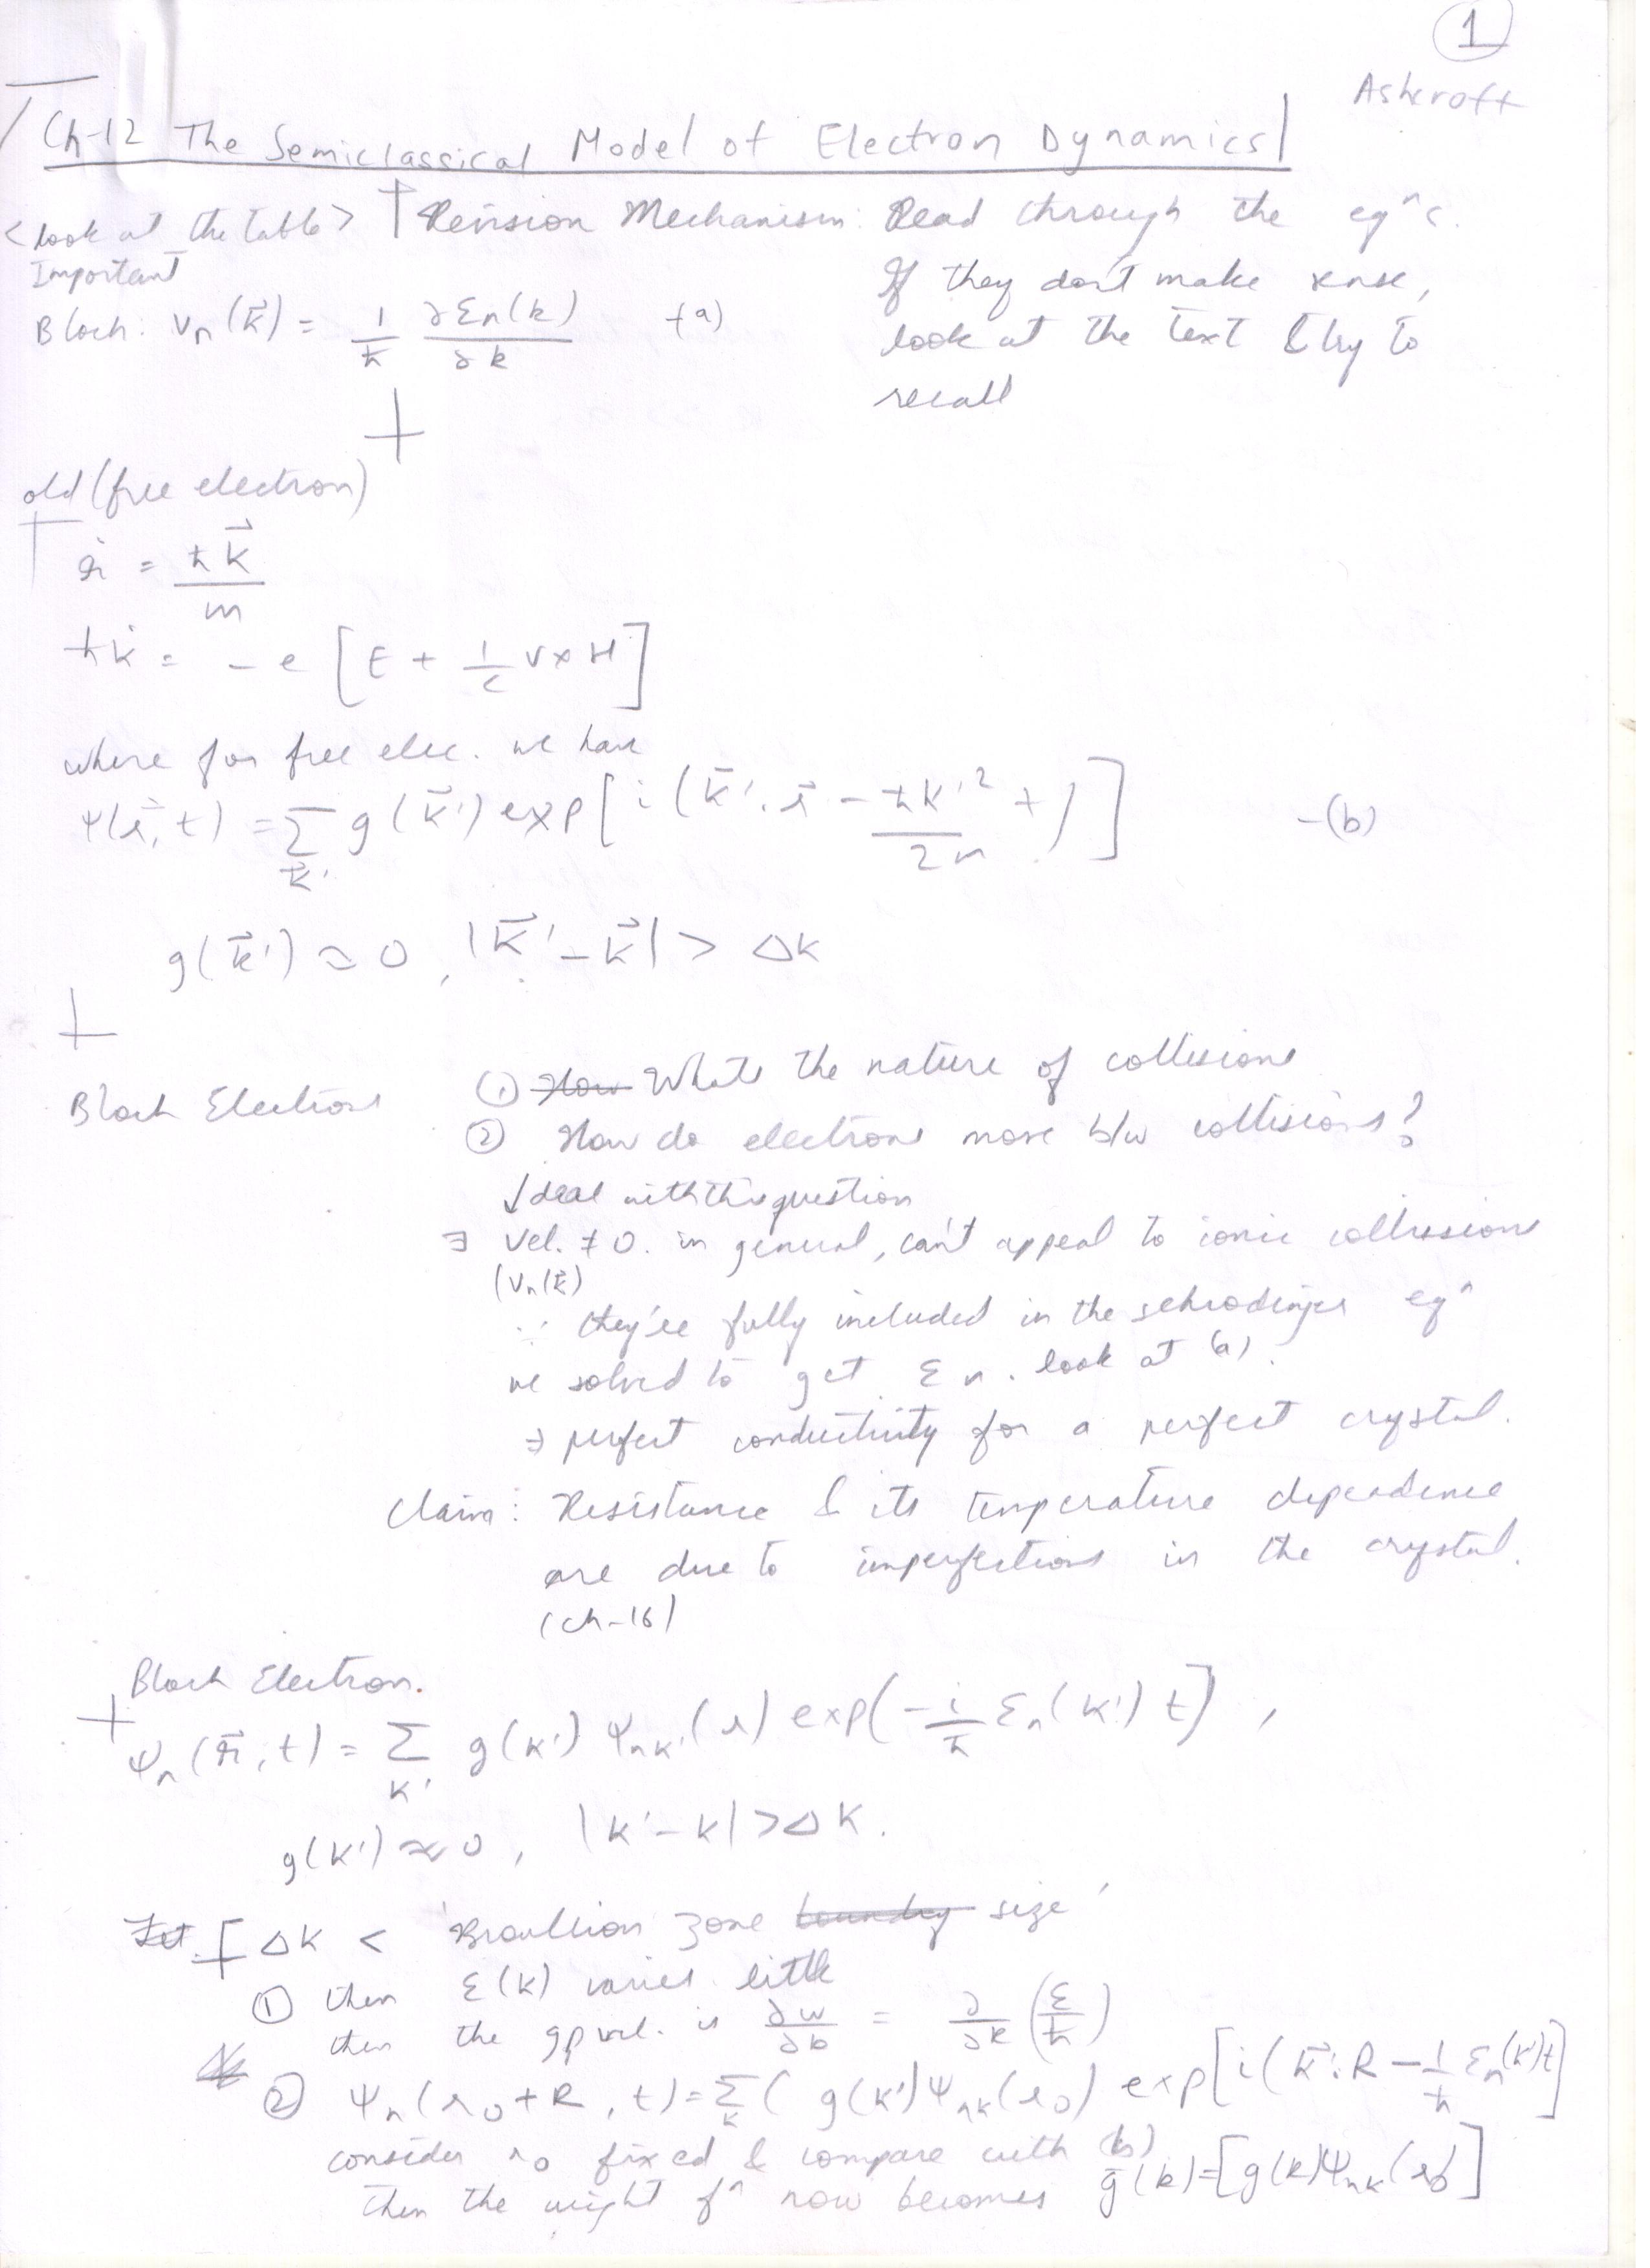 1
Ashcroft
Ch-12 The Semiclassical Model of Electron Dynamics
<look at the table> Revision Mechanism: Read through the eqⁿs.
Important If they don't make sense,
Bloch: vₙ(k⃗) = 1/ħ ∂Ɛₙ(k)/∂k -(a) look at the text & try to
recall
old (free electron)
ṙ = ħk⃗/m
ħk̇ = -e [E + 1/c v×H]
where for free elec. we have
Ψ(r⃗,t) = Σ_k⃗' g(k⃗') exp[i(k⃗'.r⃗ - ħk'²/2m t)] -(b)
g(k⃗') ≈ 0, |k⃗' - k⃗| > Δk
Bloch Electrons ① How Whats the nature of collisions
② How do electrons move b/w collisions?
↓ deal with this question
⇒ Vel. ≠ 0. in general, can't appeal to ionic collisions
(vₙ(k⃗))
∵ they're fully included in the schrodinger eqⁿ
we solved to get Ɛₙ. look at (a).
⇒ perfect conductivity for a perfect crystal.
Claim: Resistance & its temperature dependence
are due to imperfections in the crystal.
(ch-16)
Bloch Electron.
Ψₙ(r⃗,t) = Σ_k' g(k') Ψₙₖ'(r) exp(-i/ħ Ɛₙ(k') t],
g(k') ≈ 0, |k'-k| > Δk.
Let Δk < 'Broullion zone boundry size'
① then Ɛ(k) varies little
then the gp vel. is ∂w/∂k = ∂/∂k (Ɛ/ħ)
② Ψₙ(r₀+R, t) = Σ_k ( g(k')Ψₙₖ(r₀) exp[i(k⃗'.R - 1/ħ Ɛₙ(k')t]
consider r₀ fixed & compare with (b)
then the weight fⁿ now becomes ḡ(k) = [g(k)Ψₙₖ(r₀)]